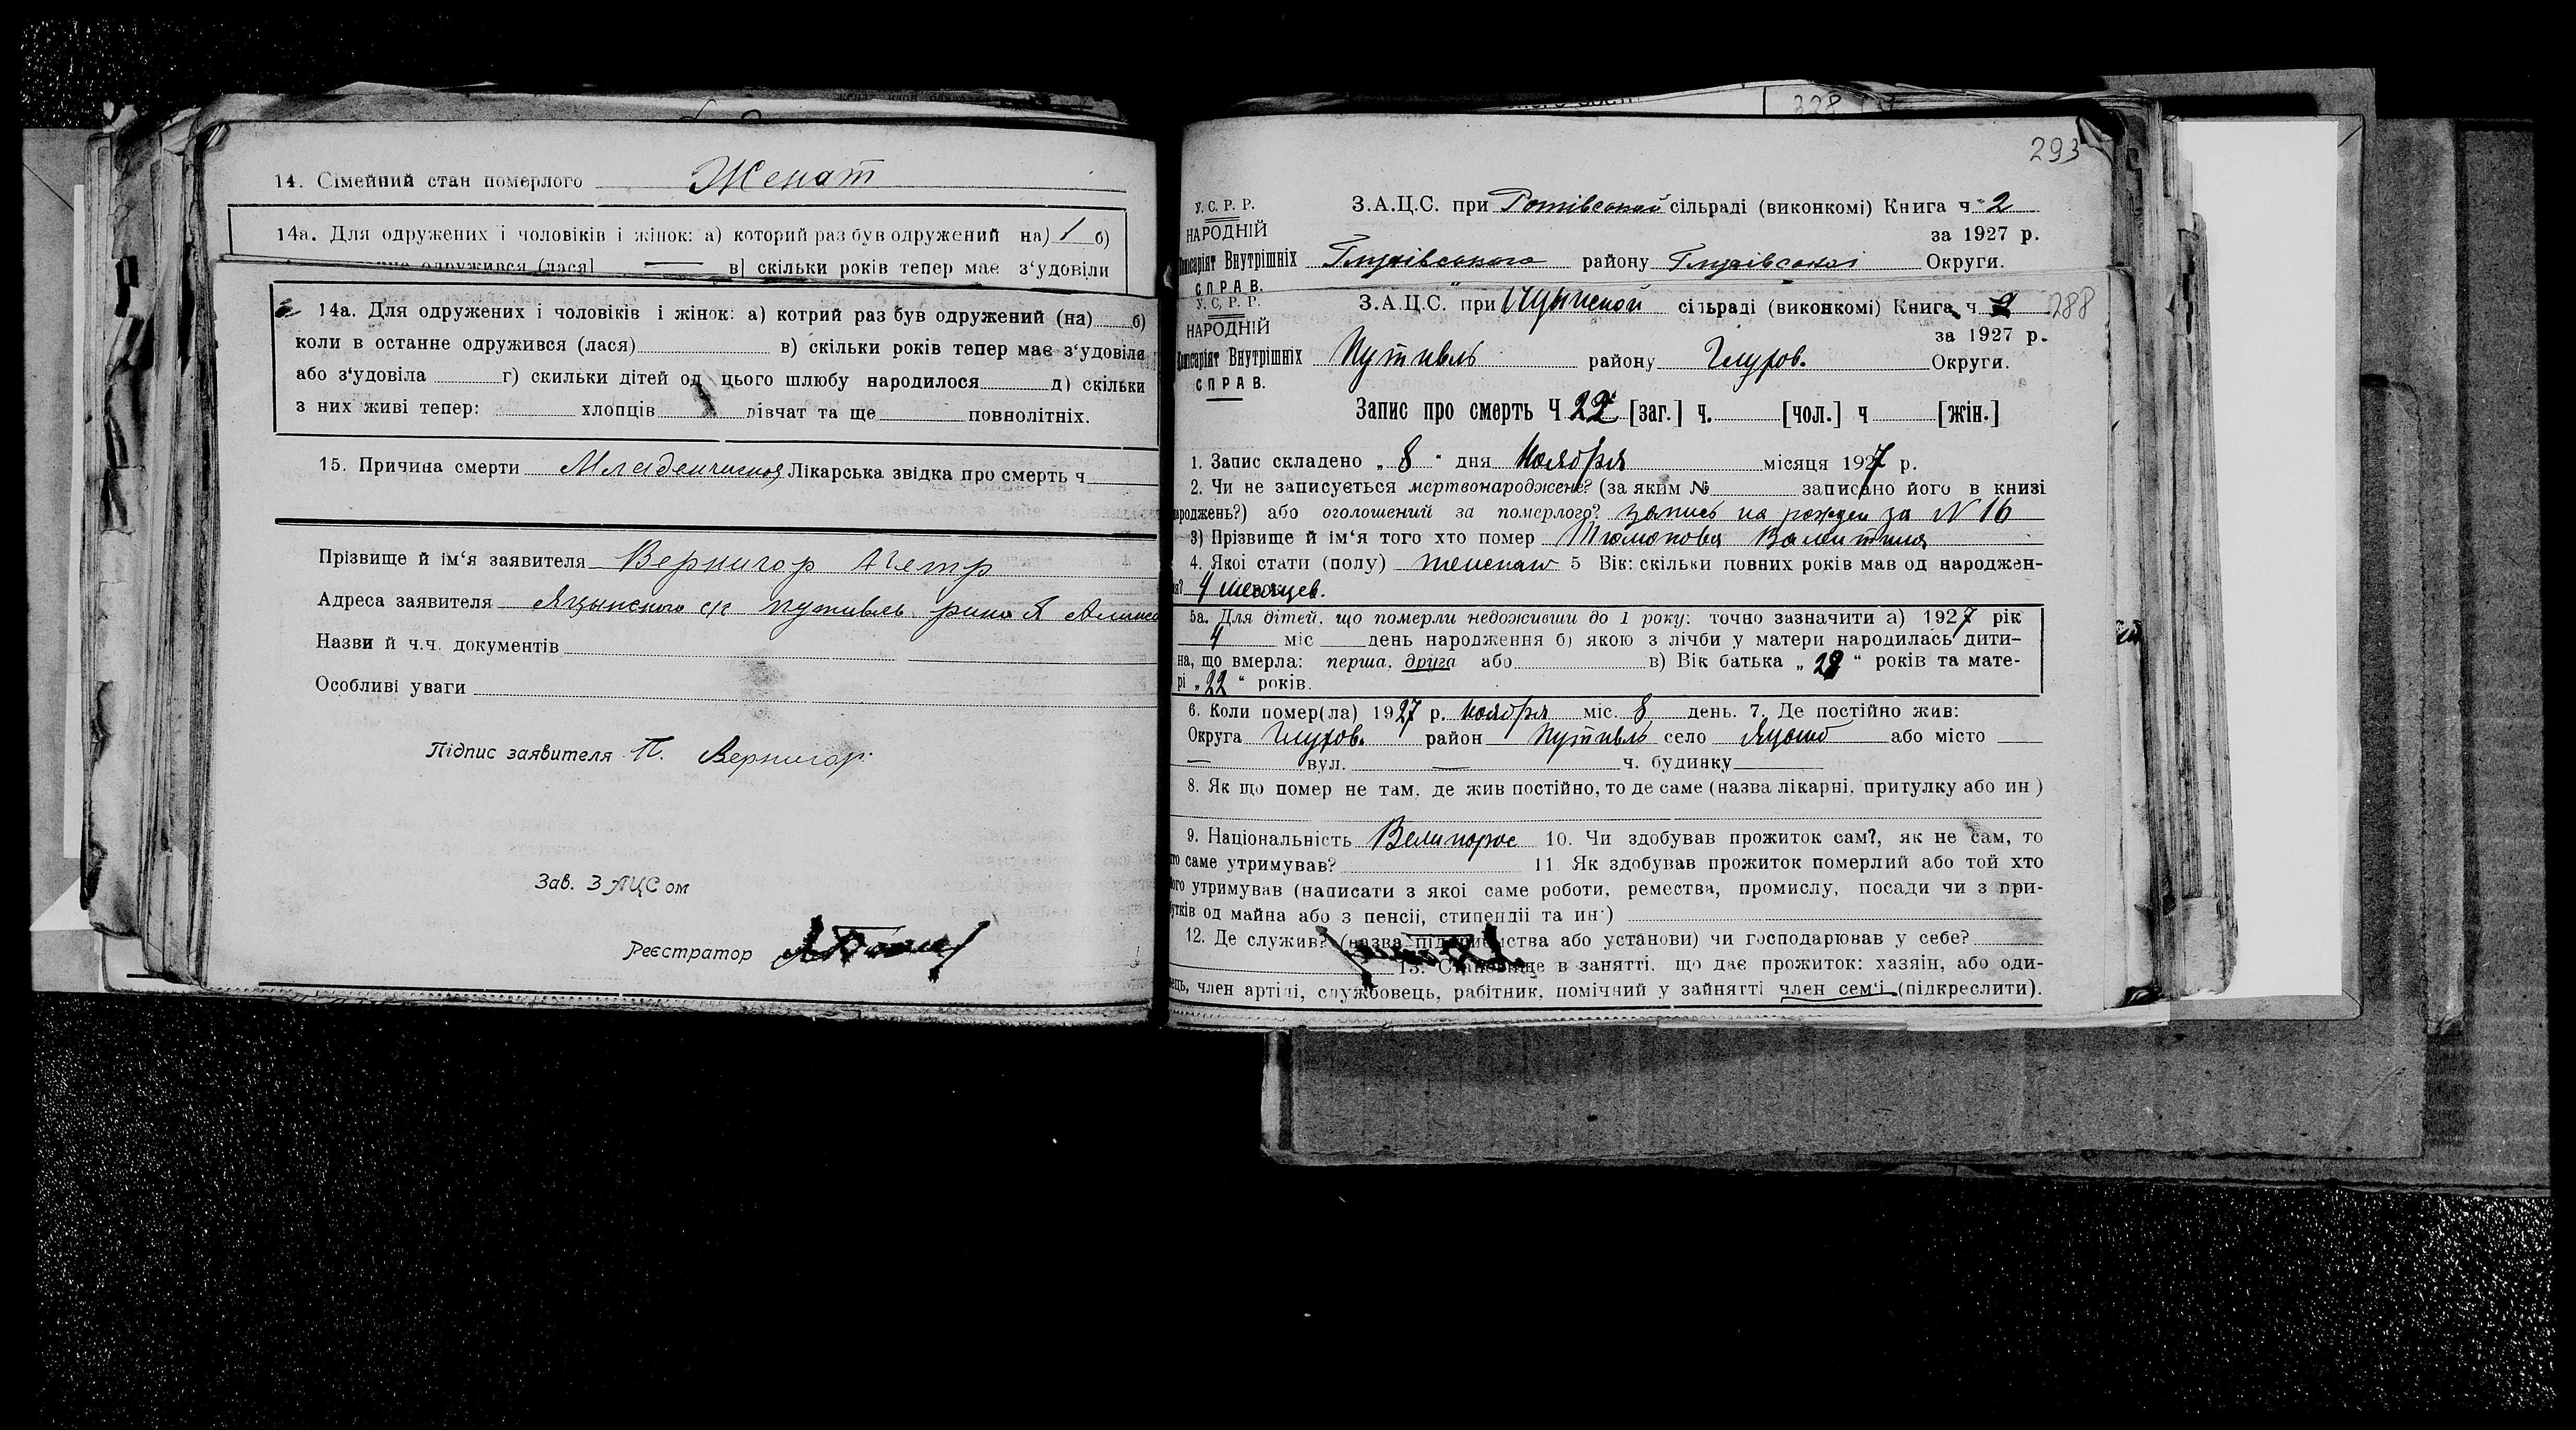 14. Сімейний стан померлого Женат
14а. Для одружених і чоловіків і жінок: а) которий раз був одружений на) 1 б)
одружився (лася) — в] скільки років тепер має з‘удовіли
14а. Для одружених і чоловіків і жінок: а) котрий раз був одружений (на) б)
коли в останне одружився (лася) в) скільки років тепер має з‘удовіля
або з‘удовіла г) скильки дітей од цього шлюбу народилося д) скільки
з них живі тепер: хлопців дівчат та ще повнолітніх.
15. Причина смерти Младенческая Лікарська звідка про смерть ч
Прізвище й ім‘я заявителя Вернигор Петр
Адреса заявителя Яцынского с/с путивль
Назви й ч.ч. документів
Особливі уваги
Підпис заявителя П. Вернигор.
Зав. ЗАЦСом
Реєстратор
328
293
У.С.Р.Р.
НАРОДНІЙ
Внутрішніх
СПРАВ.
З.А.Ц.С. при сільраді (виконкомі) Книга ч 2
за 1927 р.
Глухівського району Глухівської Округи.
У.С.Р.Р.
НАРОДНІЙ
Внутрішніх
СПРАВ.
З.А.Ц.С. при Яцынской сільраді (виконкомі) Книга ч 2 288
за 1927 р.
Путивль району Глухов. Округи.
Запис про смерть Ч 22 [заг.] ч. [чол.] ч [жін.]
1. Запис складено „ 8 “ дня Ноября місяця 1927 р.
2. Чи не записується мертвонароджене? (за яким № записано його в книзі
народжень?) або оголошений за померлого? запись на рожден за N 16
3) Прізвище й ім‘я того хто помер Валентина
4. Якої стати (полу) женская 5 Вік: скільки повних років мав од народжен-
ня? 4 месяцев.
5а. Для дітей, що померли недоживши до 1 року: точно зазначити а) 1927 рік
4 міс день народження б) якою з лічби у матери народилась дити-
на, що вмерла: перша, друга або в) Вік батька „ “ років та мате-
рі „ 22 “ років.
6. Коли помер(ла) 1927 р. Ноября міс. 8 день. 7. Де постійно жив:
Округа Глухов. район Путивль село Яцыно або місто —
— вул. — ч. будинку
8. Як що помер не там, де жив постійно, то де саме (назва лікарні, притулку або ин )
9. Національність Великорос 10. Чи здобував прожиток сам?, як не сам, то
хто саме утримував? 11. Як здобував прожиток померлий або той хто
його утримував (написати з якоі саме роботи, ремества, промислу, посади чи з при-
бутків од майна або з пенсіі, стипендіі та ин·)
12. Де служив? (назва підприємства або установи) чи господарював у себе?
13. Становище в занятті, що дає прожиток: хазяін, або оди-
нець, член артілі, службовець, рабітник, помічний у зайнятті член сем‘ї (підкреслити).